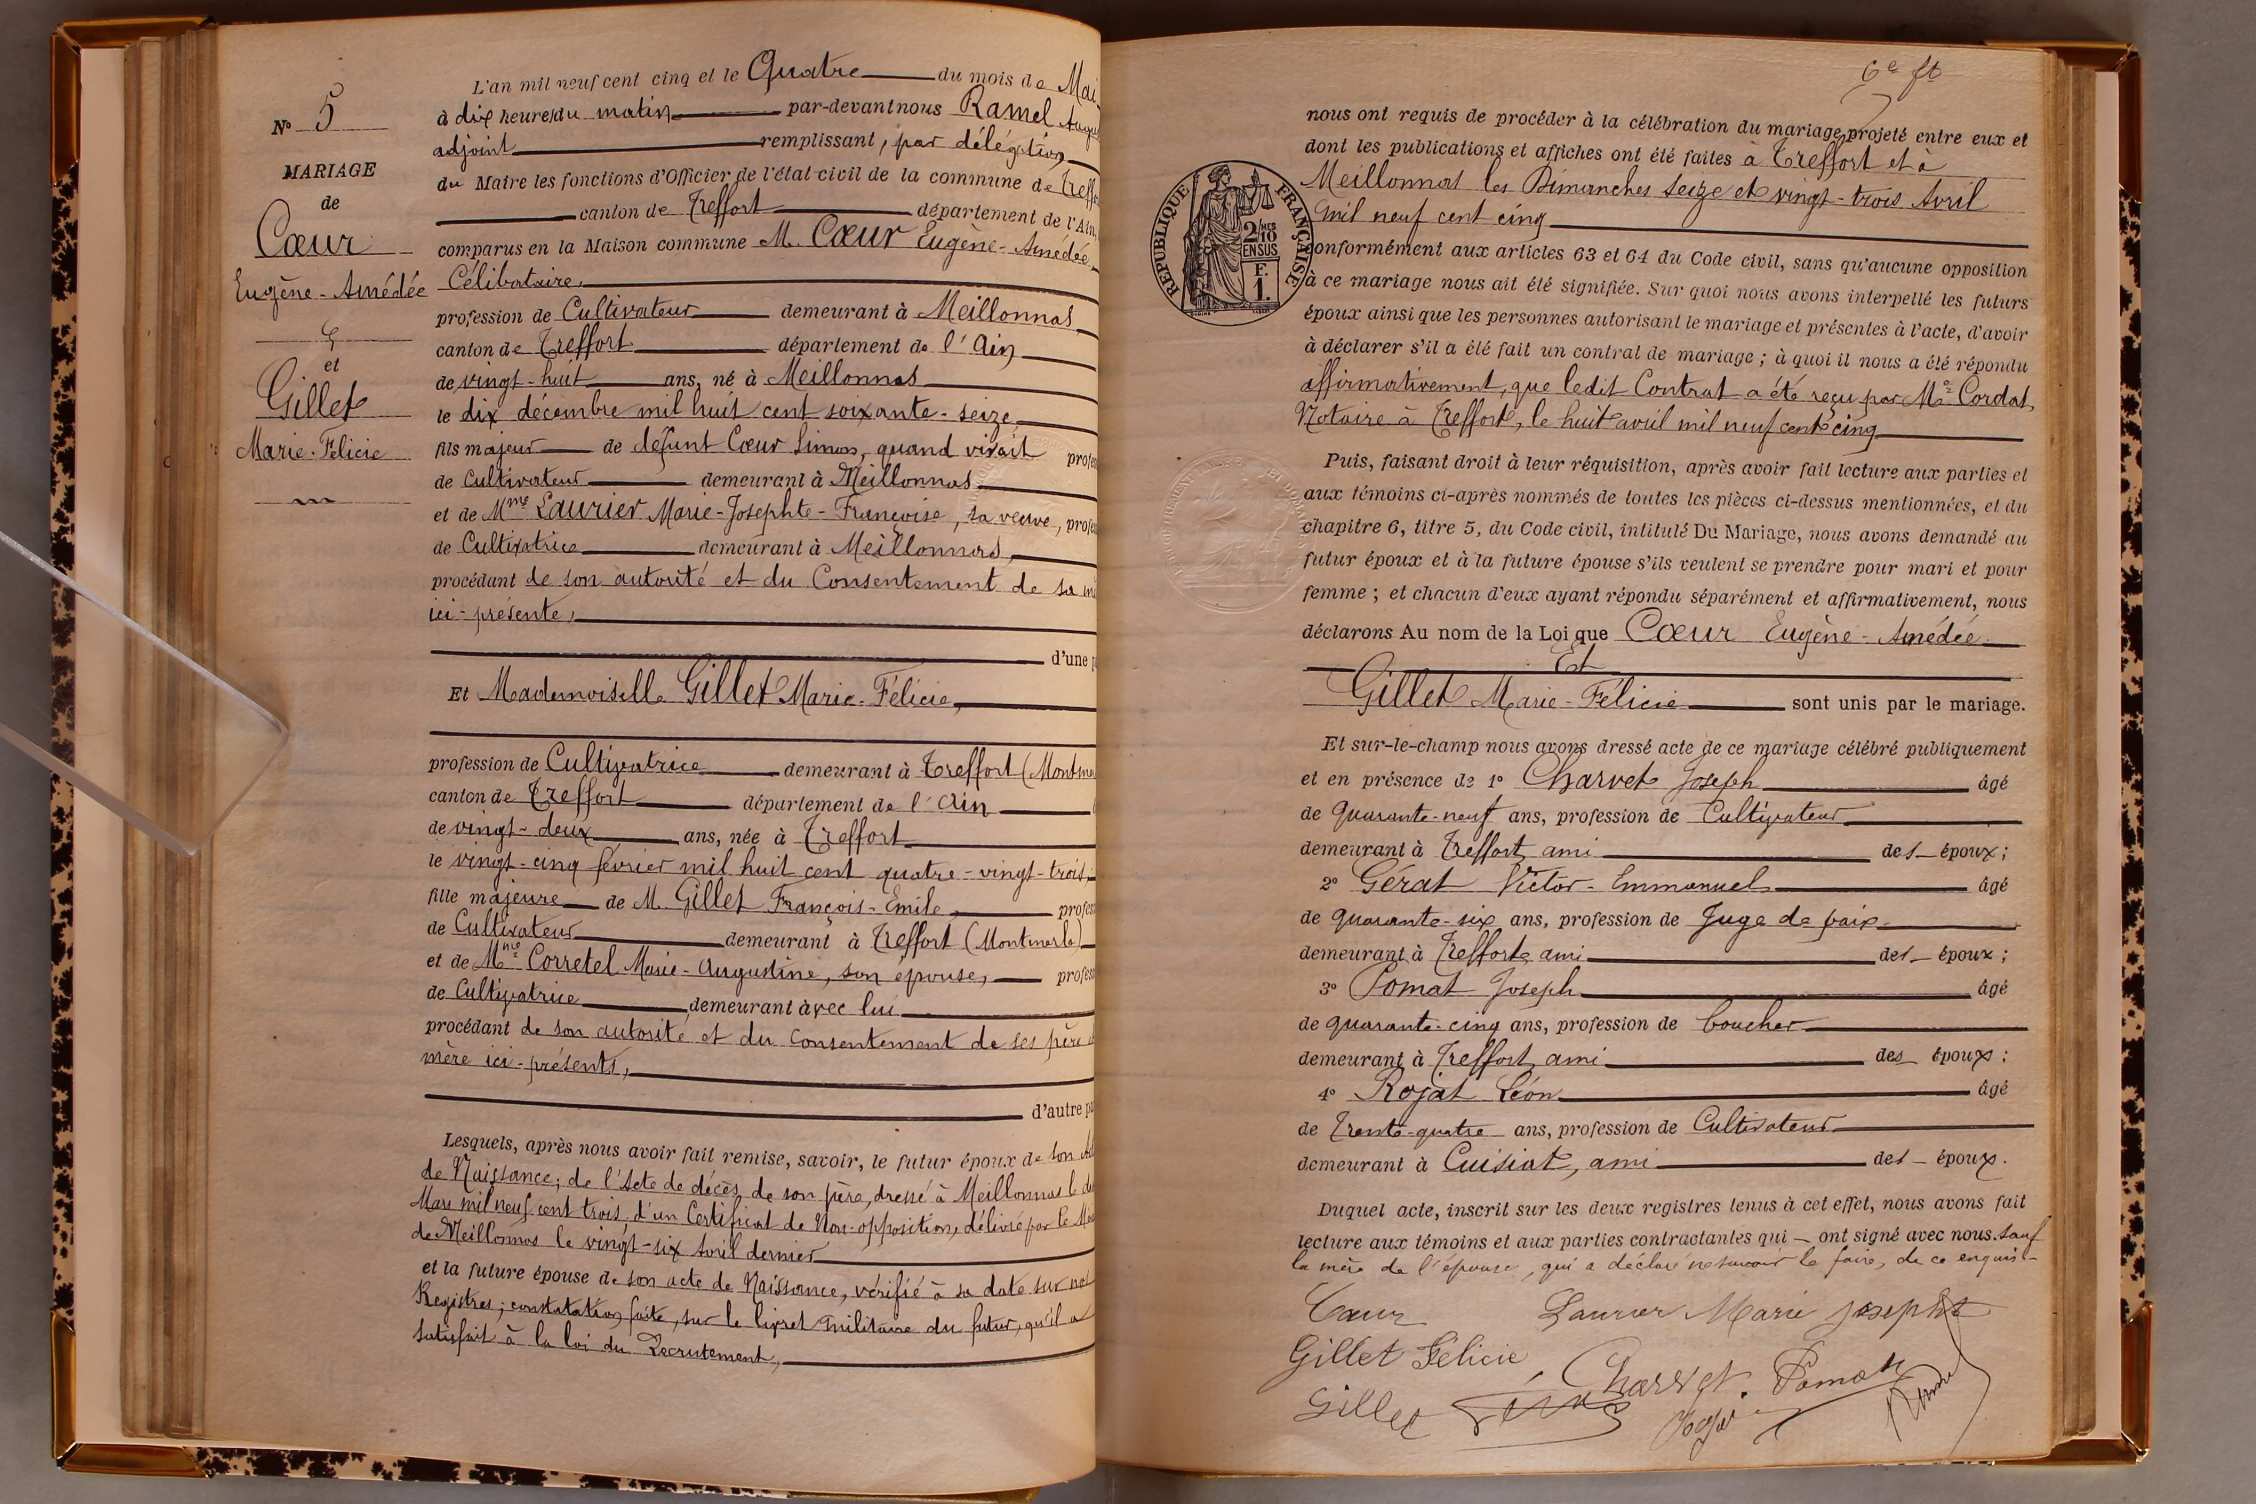 L'an mil neuf cent cinq et le Quatre du mois de Mai
à dix heures du matin par-devant nous Ramel
adjoint remplissant, par délégation
du Maire les fonctions d'Officier de l'état-civil de la commune de
canton de Treffort département de l'Ain,
comparus en la Maison commune M. Cœur Eugène-Amédée
Célibataire,
profession de Cultivateur demeurant à Meillonnas
canton de Treffort département de l'Ain
de vingt-huit ans, né à Meillonnas
le dix décembre mil huit cent soixante-seize
fils majeur de défunt Cœur Simon, quand vivait
de Cultivateur demeurant à Meillonnas
et de Mme Laurier Marie-Josephte-Françoise, sa veuve,
de Cultivatrice demeurant à Meillonnas,
procédant de son autorité et du Consentement de sa
ici-présente,
d'une
Et Mademoiselle Gillet Marie-Félicie,
profession de Cultivatrice demeurant à Treffort
canton de Treffort département de l'Ain
de vingt-deux ans, née à Treffort
le vingt-cinq février mil huit cent quatre-vingt-trois,
fille majeure de M. Gillet François-Emile
de Cultivateur demeurant à Treffort (Montmerle)
et de Mme Corretel Marie-Augustine, son épouse,
de Cultivatrice demeurant avec lui
procédant de son autorité et du consentement de ses père
mère ici-présents,
d'autre
Lesquels, après nous avoir fait remise, savoir, le futur époux de son
de Naissance; de l'Acte de décès de son père, dressé à Meillonnas le
Mars mil neuf cent trois; d'un Certificat de Non-opposition, délivré par le
de Meillonnas le vingt-six Avril dernier
et la future épouse de son acte de Naissance, vérifié à sa date sur nos
Registres; constatation faite, sur le livret militaire du futur, qu'il a
satisfait à la loi du Recrutement,
N° 5
MARIAGE
de
Cœur
Eugène-Amédée
et
Gillet
Marie-Félicie
6e ft
nous ont requis de procéder à la célébration du mariage projeté entre eux et
dont les publications et affiches ont été faites à Treffort et à
Meillonnas les Dimanches seize et vingt-trois Avril
mil neuf cent cinq
conformément aux articles 63 et 64 du Code civil, sans qu'aucune opposition
à ce mariage nous ait été signifiée. Sur quoi nous avons interpellé les futurs
époux ainsi que les personnes autorisant le mariage et présentes à l'acte, d'avoir
à déclarer s'il a été fait un contrat de mariage; à quoi il nous a été répondu
affirmativement, que ledit Contrat a été reçu par Me Cordat,
Notaire à Treffort, le huit avril mil neuf cent cinq
Puis, faisant droit à leur réquisition, après avoir fait lecture aux parties et
aux témoins ci-après nommés de toutes les pièces ci-dessus mentionnées, et du
chapitre 6, titre 5, du Code civil, intitulé Du Mariage, nous avons demandé au
futur époux et à la future épouse s'ils veulent se prendre pour mari et pour
femme; et chacun d'eux ayant répondu séparément et affirmativement, nous
déclarons Au nom de la Loi que Cœur Eugène-Amédée
Et
Gillet Marie-Félicie sont unis par le mariage.
Et sur-le-champ nous avons dressé acte de ce mariage célébré publiquement
et en présence de 1° Charvet Joseph âgé
de quarante-neuf ans, profession de Cultivateur
demeurant à Treffort, ami des époux;
2° Gérat Victor-Emmanuel âgé
de quarante-six ans, profession de Juge de paix
demeurant à Treffort, ami des époux;
3° Pomat Joseph âgé
de quarante-cinq ans, profession de boucher
demeurant à Treffort, ami des époux;
4° Rojat Léon âgé
de trente-quatre ans, profession de Cultivateur
demeurant à Cuisiat, ami des époux.
Duquel acte, inscrit sur les deux registres tenus à cet effet, nous avons fait
lecture aux témoins et aux parties contractantes qui ont signé avec nous. sauf
la mère de l'épouse, qui a déclaré ne savoir le faire, de ce enquis
Cœur Laurier Marie Josephte
Gillet Félicie Charvet Pomat
Gillet
RÉPUBLIQUE FRANÇAISE
2/10 MES
EN SUS
F.
1.